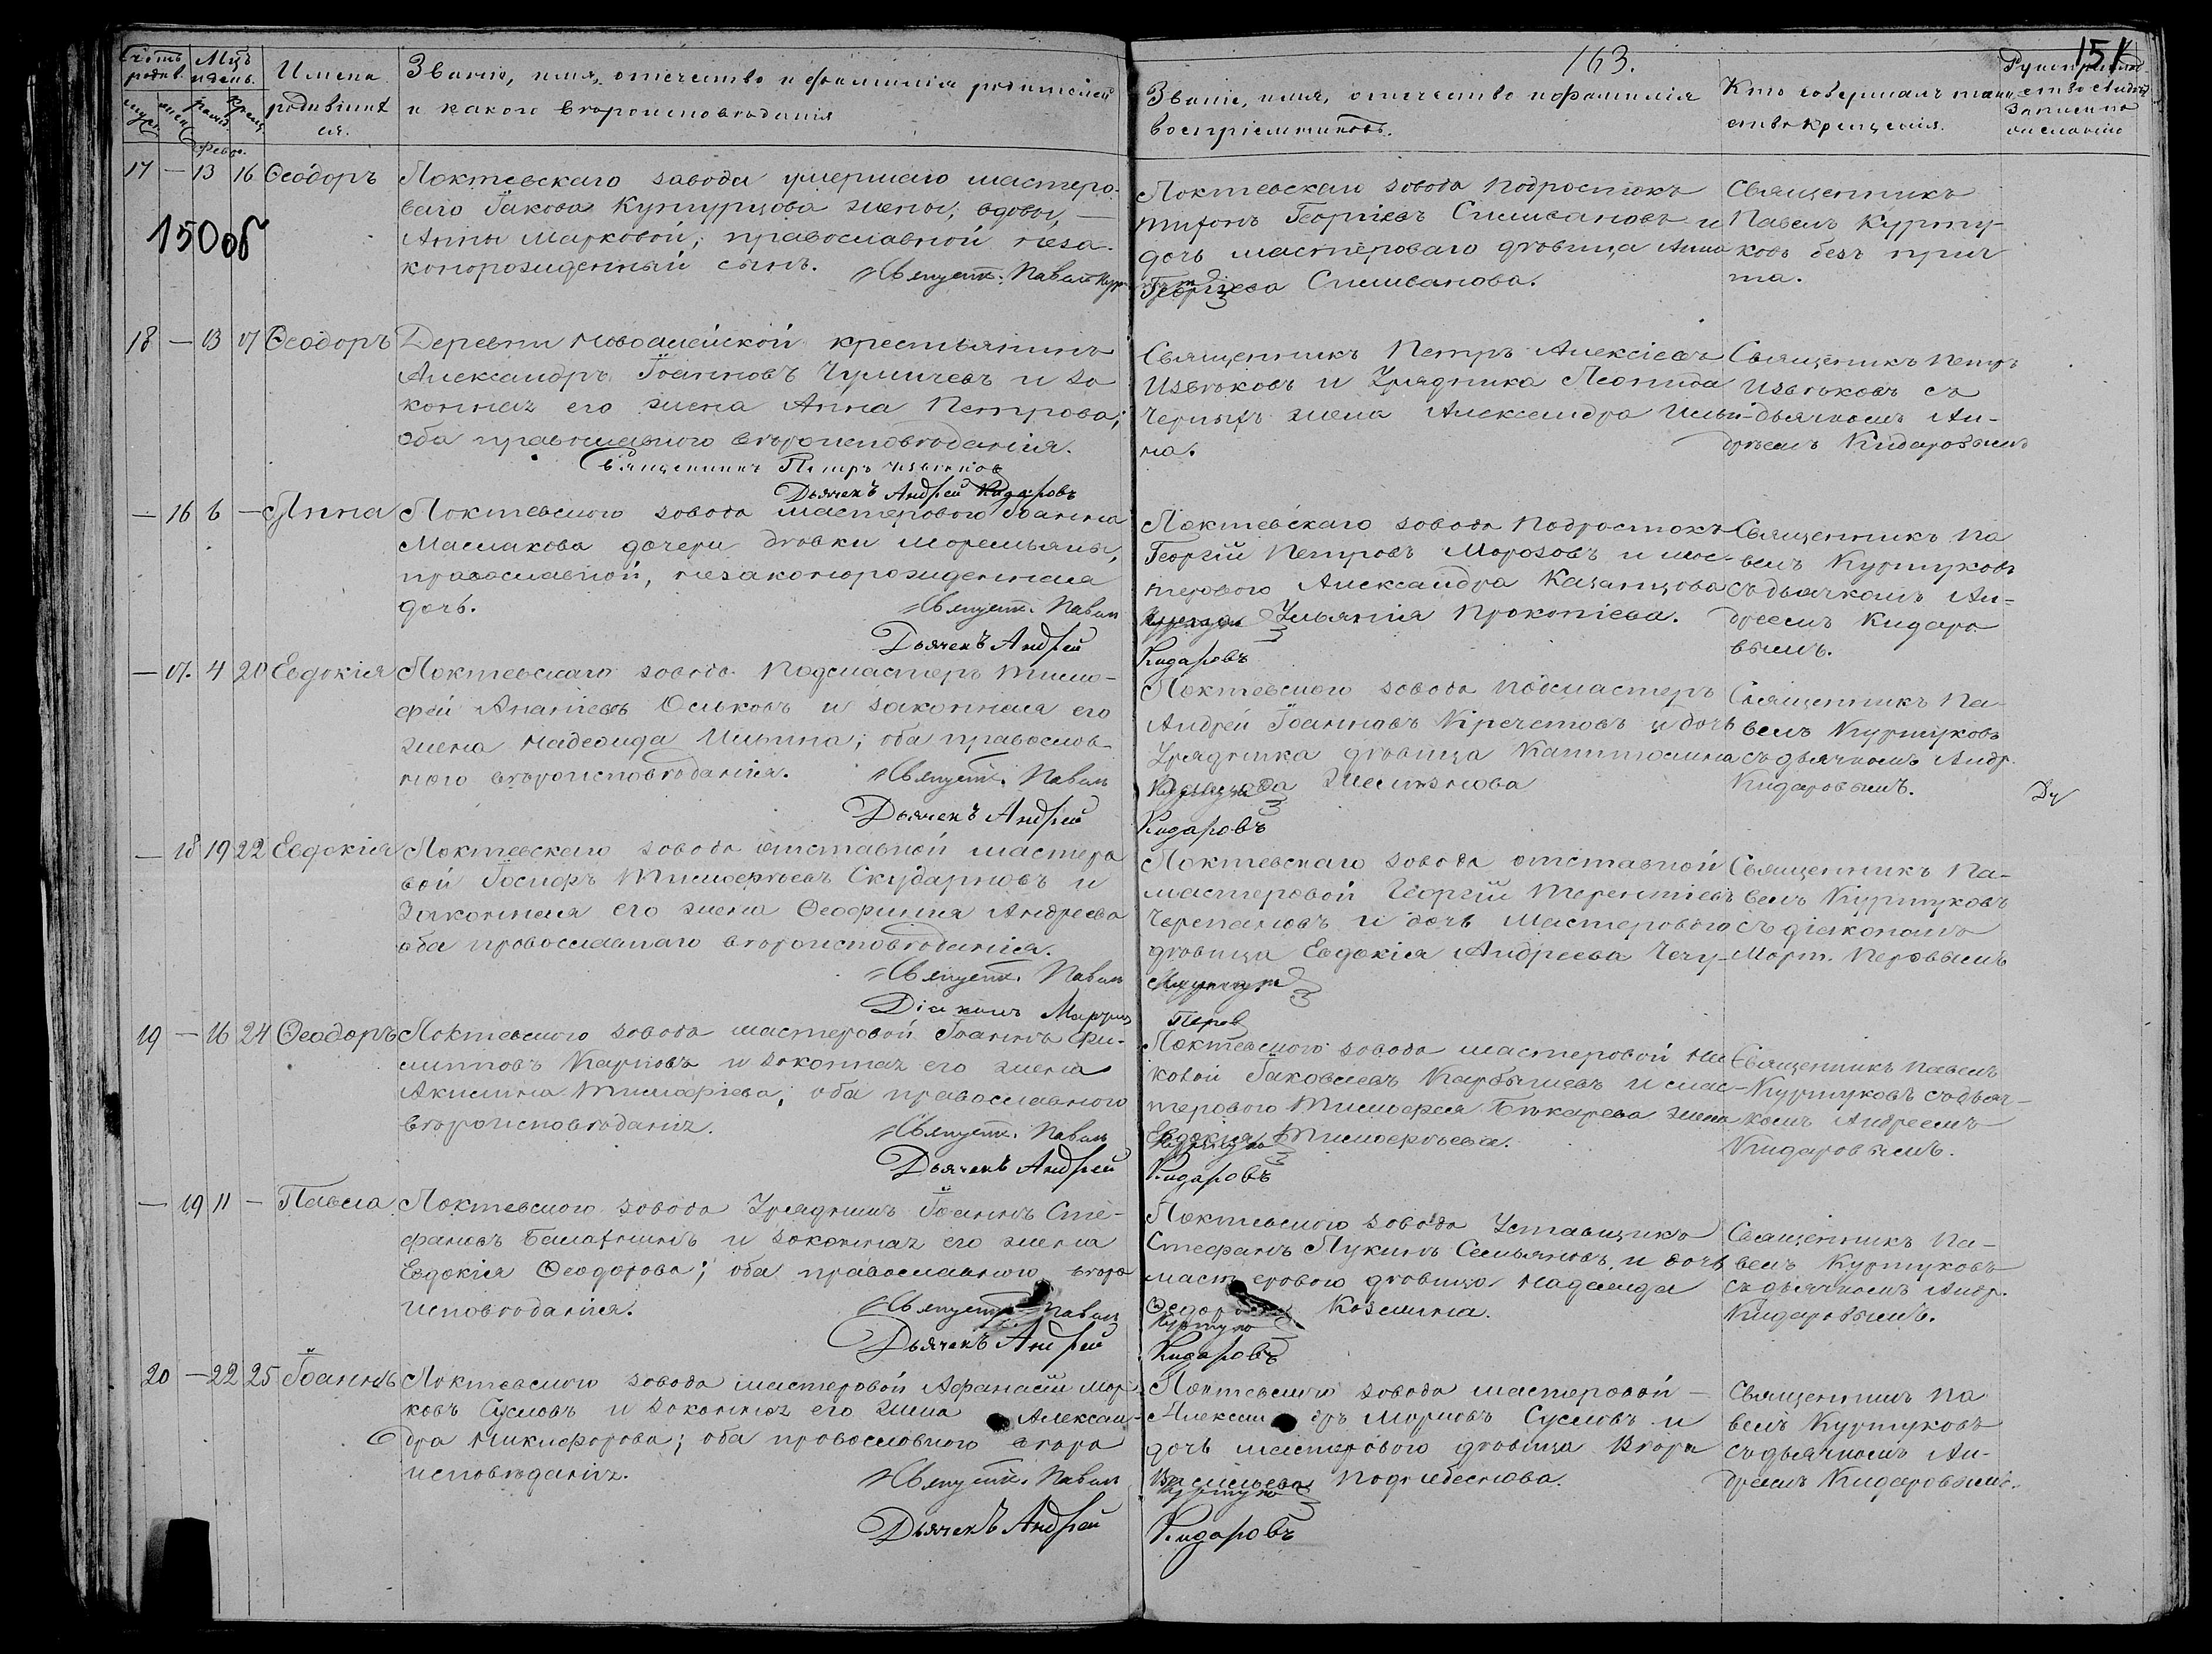 Счетъ родив. Мцъ и день. Имена
родившихся.
Званіе, имя, отечество и фамилія родителей
и какого вѣроисповѣданія
муж. жен. рожд. крещ.
февр.
163.
151
Званіе, имя, отечество и фамилія
воспріемниковъ.
Кто совершалъ таин-
ство крещенія.
150 об
17 — 13 16 Ѳеодоръ
Локтевскаго завода умершаго мастеро-
ваго Іакова жены, вдовы, —
Анны Марковой, православной неза-
конорожденный сынъ.
Священ. Павелъ
Локтевскаго завода подростокъ
Тифонъ Георгіевъ Селивановъ и
дочь мастероваго дѣвица Анна
Георгіева Селиванова.
Священникъ
Павелъ Курту-
ковъ безъ прич
та.
18 — 13 17 Ѳеодоръ
Деревни Новоалейской крестьянинъ
Александръ Іоанновъ и за
конная его жена Анна Петрова;
оба православнаго вѣроисповѣданія.
Священникъ Петръ Извѣковъ
Дьячекъ Андрей Кидаровъ
Священникъ Петръ Алексіевъ
Извѣковъ и Урядника Леонида
Черныхъ жена Александра Ильи-
на.
Священникъ Петръ
Извѣковъ съ
дьячкомъ Ан-
дреемъ Кидаровымъ
— 16 6 — Анна
Локтевскаго завода мастероваго Іоанна
Маслакова дочери дѣвки
православной, незаконорожденная
дочь.
Священ. Павелъ
Дьячекъ Андрей
Локтевскаго завода подростокъ
Георгій Петровъ Морозовъ и мас-
терового Александра Казанцова
жена Ульянія Прокопіева.
Кидаровъ
Священникъ Па
велъ Куртуковъ
съ дьячкомъ Ан-
дреемъ Кидаро
вымъ.
— 17. 4 20 Евдокія
Локтевскаго завода Подмастеръ Тимо-
фей Ананіевъ Оськовъ и законная его
жена Надежда Ильина; оба православ-
наго вѣроисповѣданія.
Священ. Павелъ
Дьячекъ Андрей
Локтевскаго завода подмастеръ
Андрей Іоанновъ Кречетовъ и дочь
Урядника дѣвица Капитолина
Кидаровъ
Священникъ Па-
велъ Куртуковъ
съ дьячкомъ Андр.
Кидаровымъ.
— 18 19 22 Евдокія
Локтевскаго завода отставной мастеро
вой Іосифъ Тимофѣевъ Скударновъ и
Законная его жена Ѳеофинія Андреева
оба православнаго вѣроисповѣданія.
Священ. Павелъ
Діаконъ
Локтевскаго завода отставной
мастеровой Георгій Терентіевъ
Черепановъ и дочь Мастероваго
дѣвица Евдокія Андреева
Перов
Священникъ Па-
велъ Куртуковъ
съ діакономъ
Март. Перовымъ
19 — 16 24 Ѳеодоръ
Локтевскаго завода мастеровой Іоаннъ Фи-
липповъ Карповъ и законная его жена
Акилина Тимофіева; оба православнаго
вѣроисповѣданія.
Священ. Павелъ
Дьячекъ Андрей
Локтевскаго завода мастеровой Ни
колай Іаковлевъ Карбышевъ и мас-
терового Тимофея Бѣкарева жена
Евдокія Тимофѣева.
Кидаровъ
Священникъ Павелъ
Куртуковъ съ дьяч-
комъ Андреемъ
Кидаровымъ.
— 19 11 — Павла
Локтевскаго завода Урядникъ Іоаннъ Сте-
фановъ и законная его жена
Евдокія Ѳеодорова; оба православнаго вѣро
исповѣданія.
Священ. Павелъ
Дьячекъ Андрей
Локтевскаго завода Уставщикъ
Стефанъ Лукинъ Сельяновъ и дочь
мастероваго дѣвица Надежда
Федорова Козмина.
Кидаровъ
Священникъ Па-
велъ Куртуковъ
съ дьячкомъ Андр.
Кидаровымъ.
20 — 22 25 Іоаннъ
Локтевскаго завода мастеровой Афанасій Мар
ковъ Сусловъ и законная его жена Алексан-
дра Никифорова; оба православнаго вѣро
исповѣданія.
Священ. Павелъ
Дьячекъ Андрей
Локтевскаго завода мастеровой —
Александръ Марковъ Сусловъ и
дочь мастероваго дѣвица Вѣра
Васильева Поднебеснова.
Кидаровъ
Священникъ Па
велъ Куртуковъ
съ дьячкомъ Ан-
дреемъ Кидаровымъ.